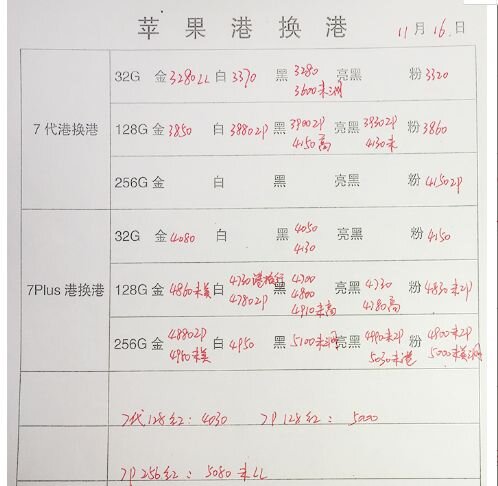 苹果港换港 11月16日
7代港换港
32G 金 3280LL 白 3370 黑 3280 亮黑 粉 3320
3600未澳
128G 金 3850 白 3880ZP 黑 3900ZP 亮黑 3930ZP 粉 3860
4150高 4130未
256G 金 白 黑 亮黑 粉 4150ZP
7Plus 港换港
32G 金 4080 白 黑 4050 亮黑 粉 4150
4130
128G 金 4860未美 白 4730港 黑 4700 亮黑 4730 粉 4830未ZP
4780ZP 4800 4780高
4910未高
256G 金 4880ZP 白 4950 黑 5100未 亮黑 4990未ZP 粉 4900未ZP
4960未美 5030未港 5000未美
7代128红: 4030 7P 128红: 5000
7P 256红: 5080未LL